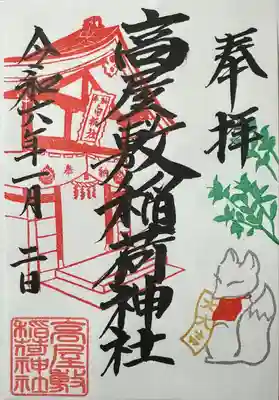 奉拝
高屋敷稲荷神社
令和六年一月二日
高屋敷
稲荷神社